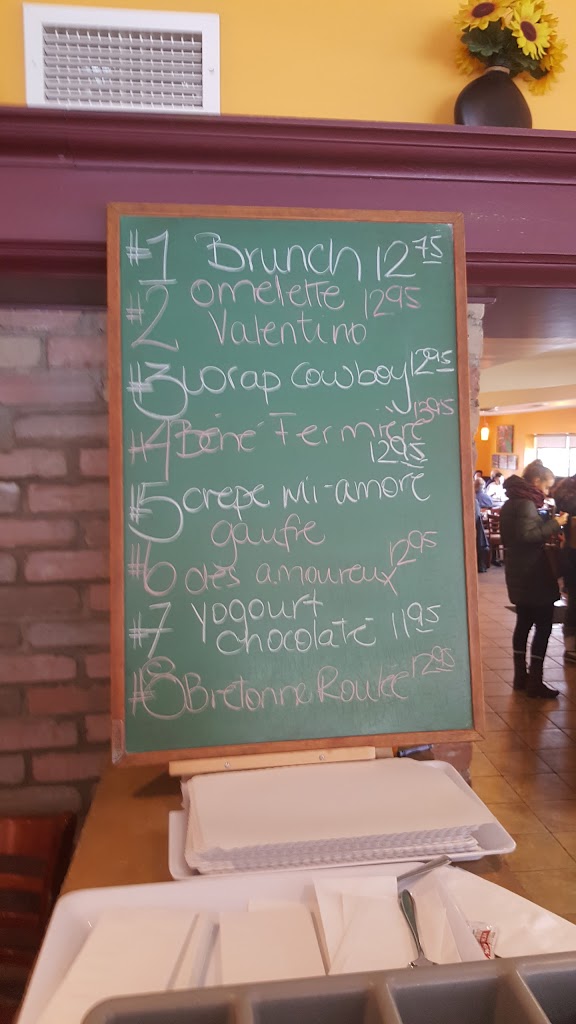 #1 Brunch 12 75
#2 omelette 12 95
Valentino
#3 wrap cowboy 12 95
#4 Béné Fermière 13 95
12 95
#5 crepe Mi-amore
gaufre
#6 des amoureux 12 95
#7 yogourt
chocolaté 11 95
#8 Bretonne Roulée 12 95